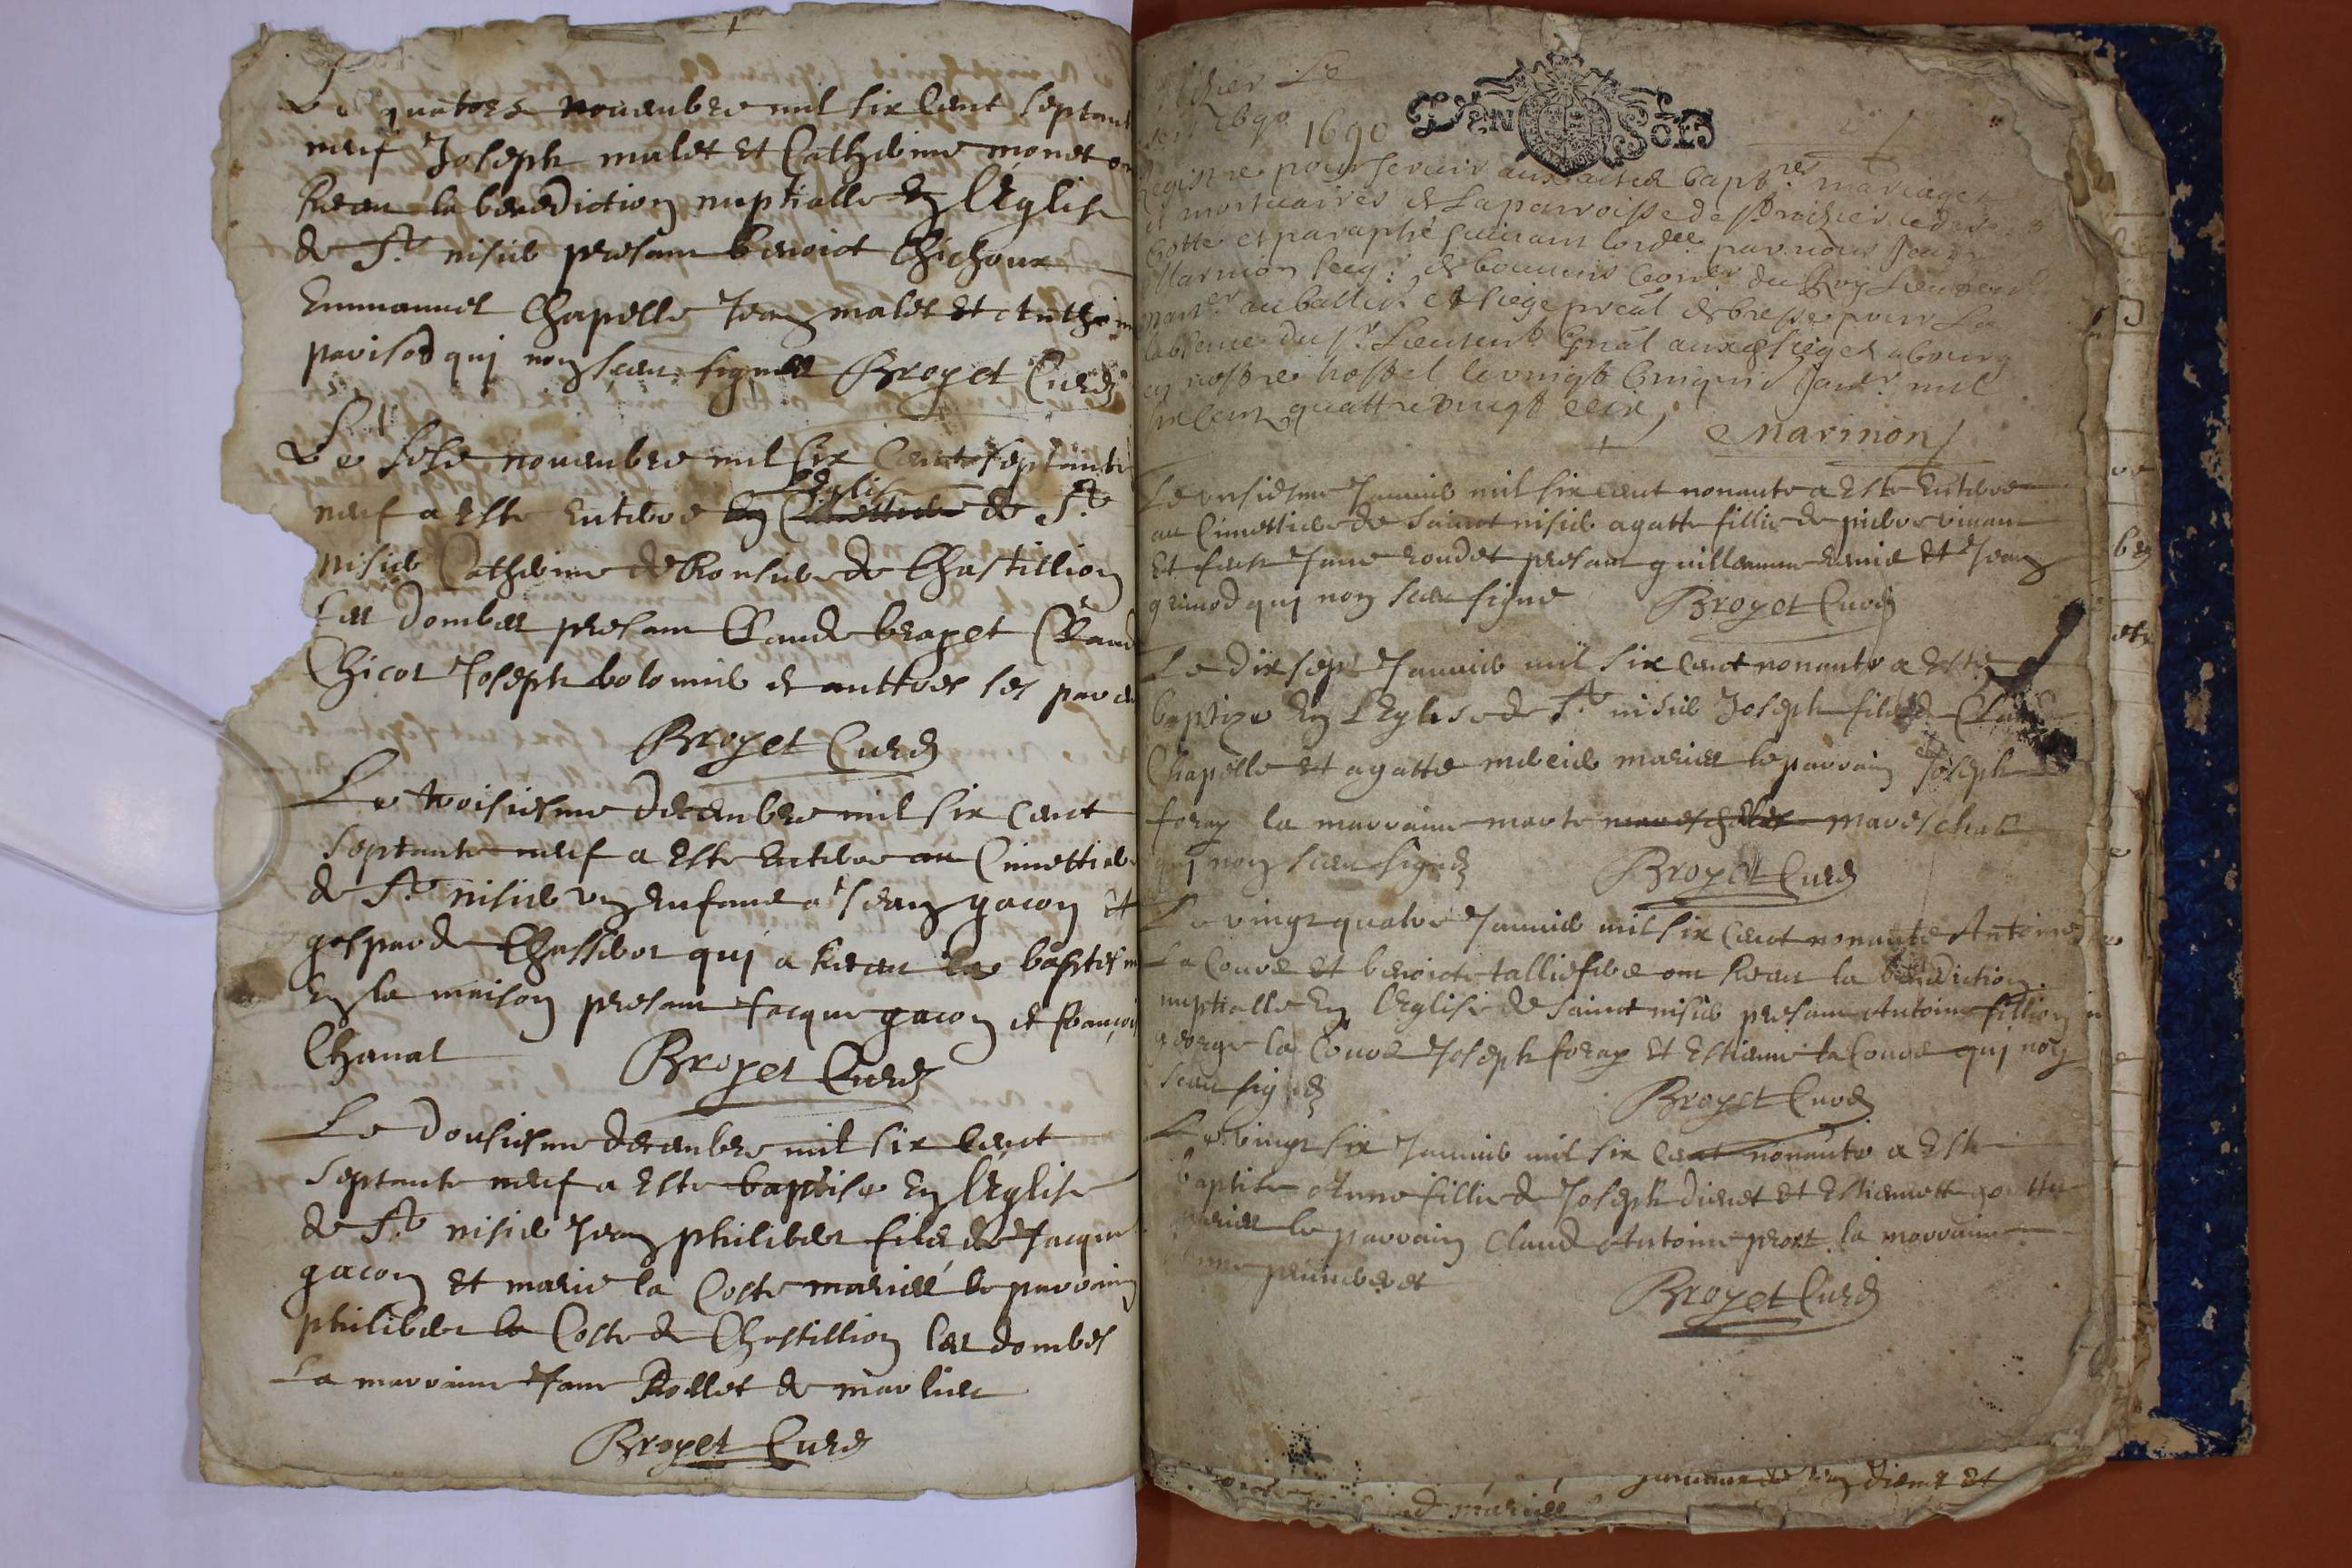 Le quatorze nouembre mil six Cent septant
neuf Joseph malet et Catherine monet on
Receu la benediction nuptialle En lEglise
de St nisier presant benoict Chichoux
Emmanuel Chapelle Jean malet et Anthoin
parisod qui non sceu signer Broyet Curé
Le sese nouembre mil six Cent septante
lEglise
neuf a este enteré En Cimettiere de St
nisier Catherine de Ronsiere de Chastillion
Les dombes presant Claude brayet Claud
Chicot Joseph bolomier et auttres ses pare
Broyet Curé
Le troisiesme decembre mil six Cent
septante neuf a este enteré au Cimettiere
de St nisier un enfant a Jean gacon et
gasparde Chassibot qui a Receu le baptesm
En la maison presant Jacque gacon et françois
Chanal Broyet Curé
Le dousiesme decembre mil six Cent
septante neuf a este baptise En lEglise
de St nisier Jean philiber fils de Jacque
gacon et marie la Coste mariés le parrain
philiber la Coste de Chastillion les dombes
La marraine Jane Rollet de marlieu
Broyet Curé
1690 DEN SOLS
Registre pour seruir aux actes bapt.res mariages
et mortuaires de la parroisse de St nizier
Cotté et paraphé suiuant lord.ce par nous Jean
Marinon du Roy
au balliage et siege preal de bresse pour
labsence du Sr Lieutent gnal a bourg
en nostre hostel le vingt Cinquie Janr mil
six Cent quattre vingt dix
Marinon
Le onsiesme Januier mil six Cent nonante a este enteree
au Cimettiere de Sainct nisier agatte fillie de piere viuant
Et feue Jane rondet presant guillaume et Jean
grimod qui non sceu signe Broyet Curé
Le dix sept Januier mil six Cent nonante a este
baptize En LEglise de St nisier Joseph fils de Claude
Chapelle et agatte mercier mariés le parrain Joseph
foray la marraine marte mareschal
qui non sceu signé Broyet Curé
Le vingt quatre Januier mil six Cent nonante Antoine
La Coure et benoicte talliefere ont Receu la benediction
nuptialle En lEglise de Sainct nisier presant Antoine fillion
george la Coure Joseph foray Et Estienne la Coure qui non
sceu signé Broyet Curé
Le vingt six Januier mil six Cent nonante a este
baptise Anne fillie de Joseph dienet et Estiennette
mariés le parrain Claude Antoine prost la marraine
Broyet Curé
dienet et
mariés